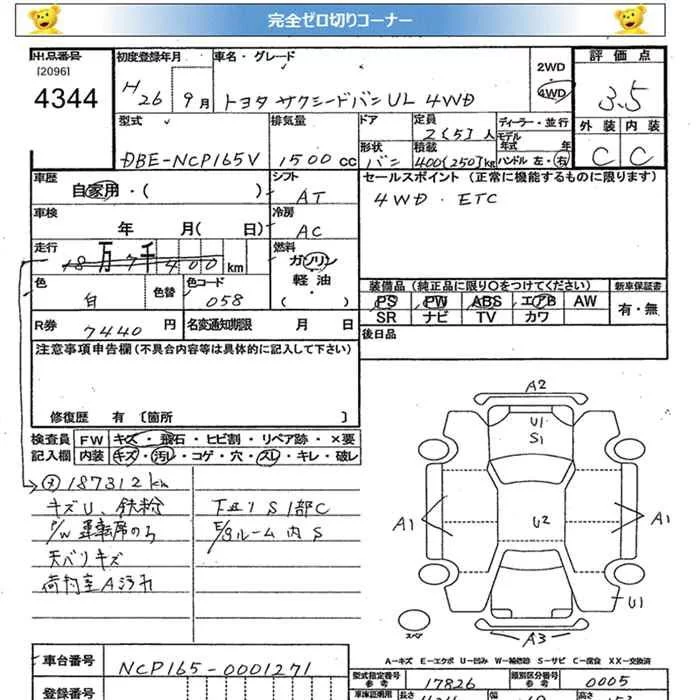 完全ゼロ切りコーナー
出品番号
[2096]
4344
初度登録年月
H26 9月
車名・グレード
トヨタ サクシードバン UL 4WD
2WD
4WD
評価点
3.5
外装 内装
C C
型式
DBE-NCP165V
排気量
1500 cc
ドア
定員
2(5)人
形状
バン
積載
400(250)kg
ディーラー・並行
モデル
年式 年
ハンドル 左・右
車歴
自家用・( )
シフト
AT
セールスポイント (正常に機能するものに限ります)
4WD . ETC
車検
年 月( 日)
冷房
AC
走行
18万7千400km
燃料
ガソリン
軽油
( )
色
白
色替
色コード
058
装備品 (純正品に限り〇をつけてください)
PS PW ABS エアB AW
SR ナビ TV カワ
新車保証書
有・無
R券
7440 円
名変通知期限 月 日
後日品
注意事項申告欄 (不具合内容等は具体的に記入して下さい)
修復歴 有 〔箇所 〕
検査員
記入欄
FW キズ・飛石・ヒビ割・リペア跡・×要
内装 キズ・汚レ・コゲ・穴・スレ・キレ・破レ
187312km
キズU、鉄粉
P/W運転席のみ
天バリキズ
荷物室A汚れ
下廻りS 1部C
E/gルーム内S
A2
U1
S1
A1
U2
A1
U1
スペア
A3
A-キズ E-エクボ U-凹み W-補修跡 S-サビ C-腐食 XX-交換済
車台番号
NCP165-0001271
登録番号
型式指定番号
参考
17826
類別区分番号
参考
0005
車庫証明用
長さ